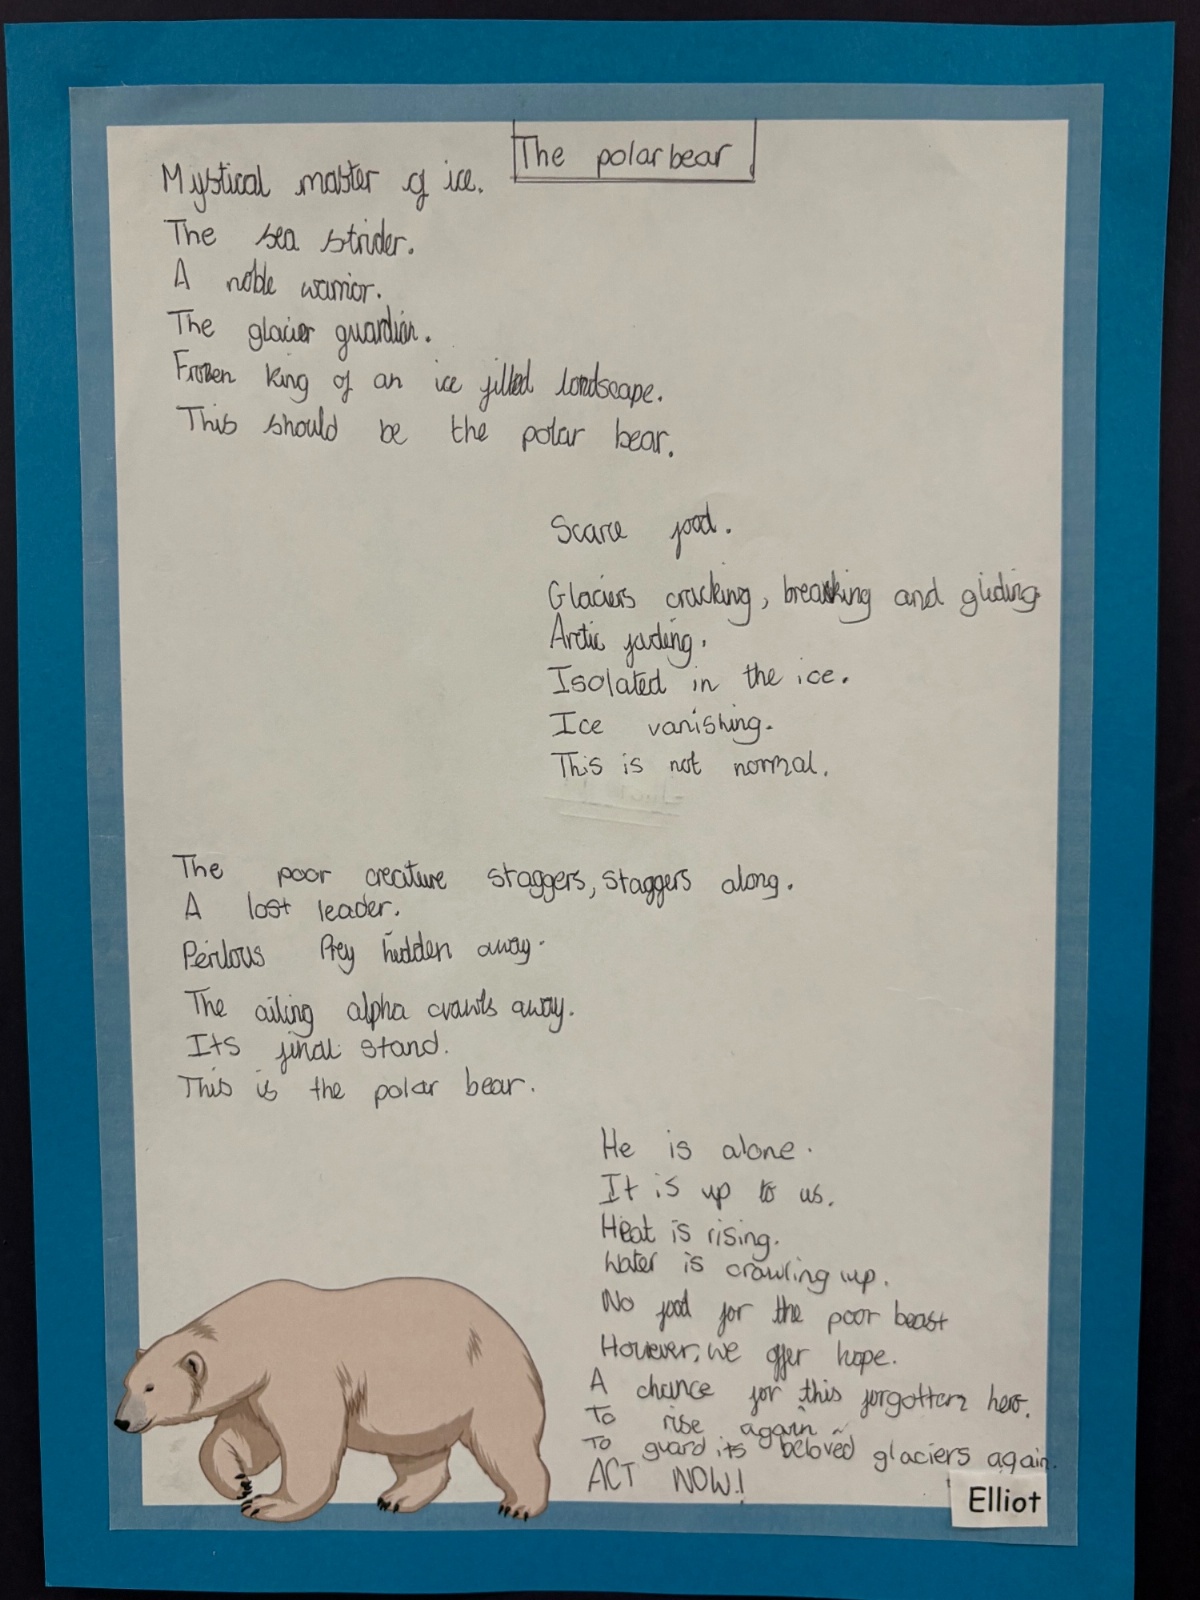 The polar bear
Mystical master of ice.
The sea strider.
A noble warrior.
The glacier guardian.
Frozen king of an ice filled landscape.
This should be the polar bear.
Scarce food.
Glaciers cracking, breaking and gliding.
Arctic fading.
Isolated in the ice.
Ice vanishing.
This is not normal.
The poor creature staggers, staggers along.
A lost leader.
Perilous Prey hidden away.
The ailing alpha crawls away.
Its final stand.
This is the polar bear.
He is alone.
It is up to us.
Heat is rising.
Water is crawling up.
No food for the poor beast
However, we offer hope.
A chance for this forgotten hero.
To rise again
To guard its beloved glaciers again.
ACT NOW!
Elliot